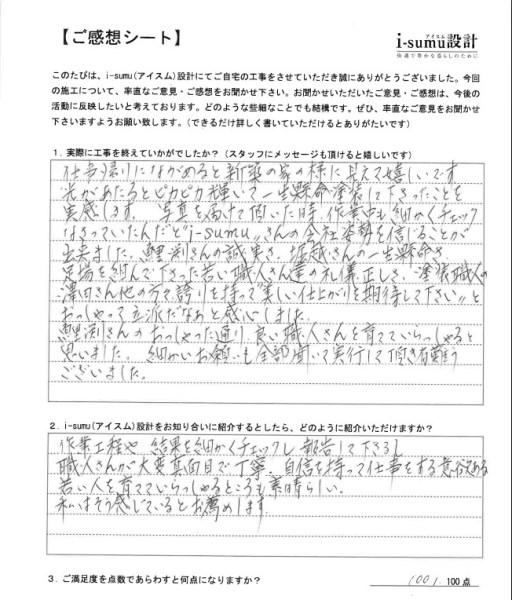 【ご感想シート】
アイスム
i-sumu設計
快適で豊かな暮らしのために
このたびは、i-sumu(アイスム)設計にてご自宅の工事をさせていただき誠にありがとうございました。今回
の施工について、率直なご意見・ご感想をお聞かせ下さい。お聞かせいただいたご意見・ご感想は、今後の
活動に反映したいと考えております。どのような些細なことでも結構です。ぜひ、率直なご意見をお聞かせ
下さいますようお願い致します。（できるだけ詳しく書いていただけるとありがたいです）
1．実際に工事を終えていかがでしたか？（スタッフにメッセージも頂けると嬉しいです）
仕事帰りにながめると新築の家の様に見えて嬉しいです
光があたるとピカピカ輝いて一生懸命塗装して下さったことを
実感します。写真を届けて頂いた時、作業中も細かくチェック
なさっていたんだと"i-sumu"さんの会社姿勢を信じることが
出来ました。鯉渕さんの誠実さ、堀越さんの一生懸命さ
足場を組んで下さった若い職人さん達の礼儀正しさ、塗装職人の
澤田さん他の方で誇りを持って"美しい仕上がりを期待して下さい"と
おっしゃって立派だなぁと感心しました。
鯉渕さんのおっしゃった通り、良い職人さんを育てていらっしゃると
思いました。細かいお願いも全部聞いて実行して頂き有難う
ございました。
2．i-sumu(アイスム)設計をお知り合いに紹介するとしたら、どのように紹介いただけますか？
作業工程や結果を細かくチェックし報告して下さる！
職人さんが大変真面目で丁寧。自信を持って仕事をする意欲ある
若い人を育てていらっしゃるところも素晴らしい。
私はそう感じているとお薦めします。
3．ご満足度を点数であらわすと何点になりますか？
100/100点